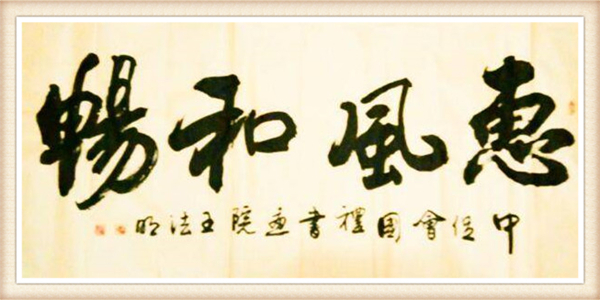 惠風和暢
中促會國禮書畫院王法明